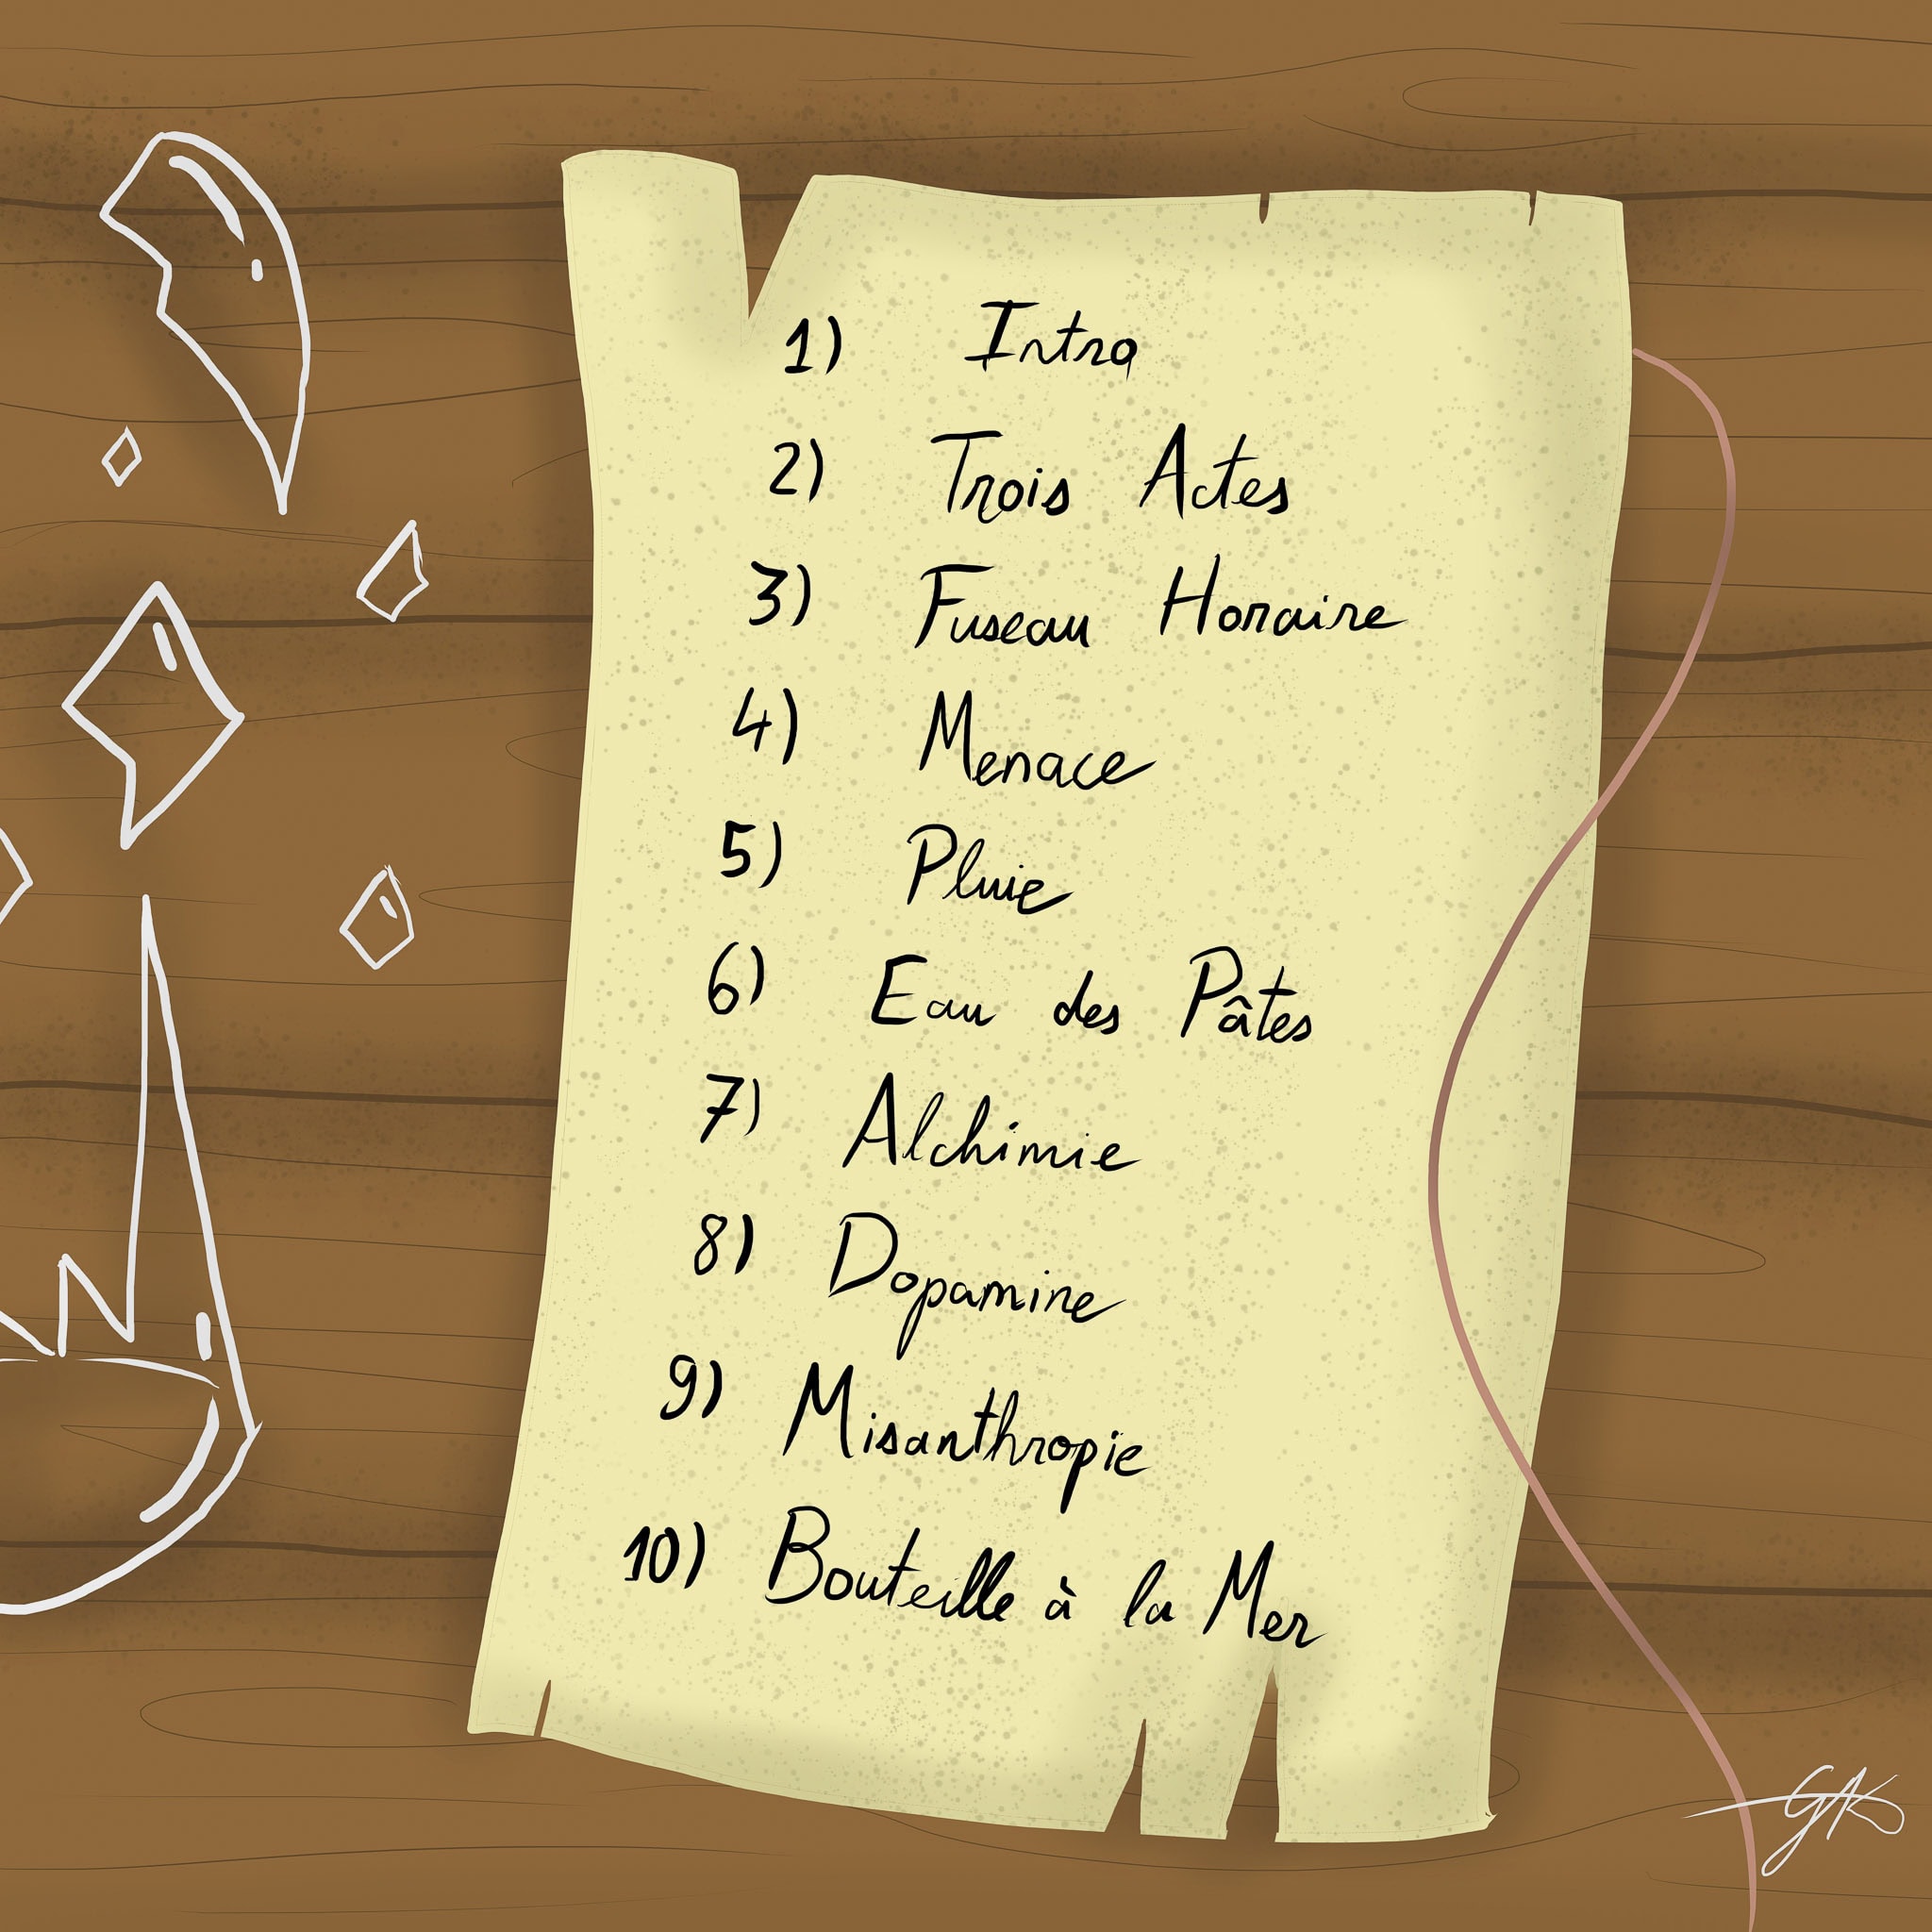 1) Intro
2) Trois Actes
3) Fuseau Horaire
4) Menace
5) Pluie
6) Eau des Pâtes
7) Alchimie
8) Dopamine
9) Misanthropie
10) Bouteille à la Mer
GAK